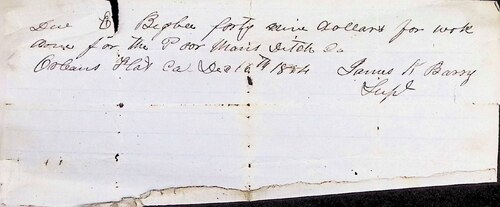 Due E Bigbee forty nine dollars for work
done for the Poor Man's Ditch Co
Orleans Flat Cal Dec 16th 1854 James K Barry
Supt